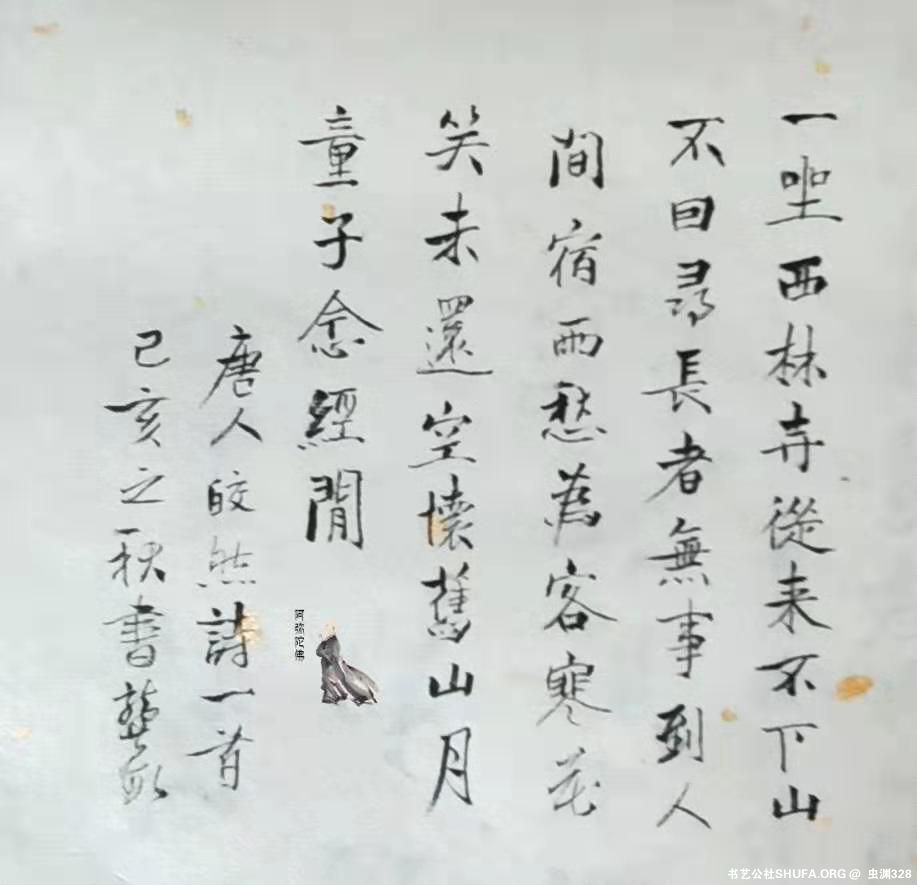 一坐西林寺從来不下山
不曰尋長者無事到人
間宿雨愁為客寒花
笑未還空懷舊山月
童子念經閒
唐人皎然詩一首
己亥之秋書
阿弥陀佛
书艺公社SHUFA.ORG @ 虫渊328